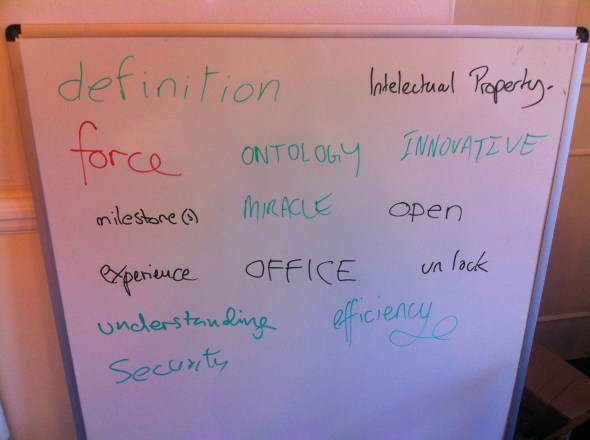 definition Intelectual Property.
force ONTOLOGY INNOVATIVE
milestone(s) MIRACLE open
experience OFFICE unlock
understanding efficiency
Security